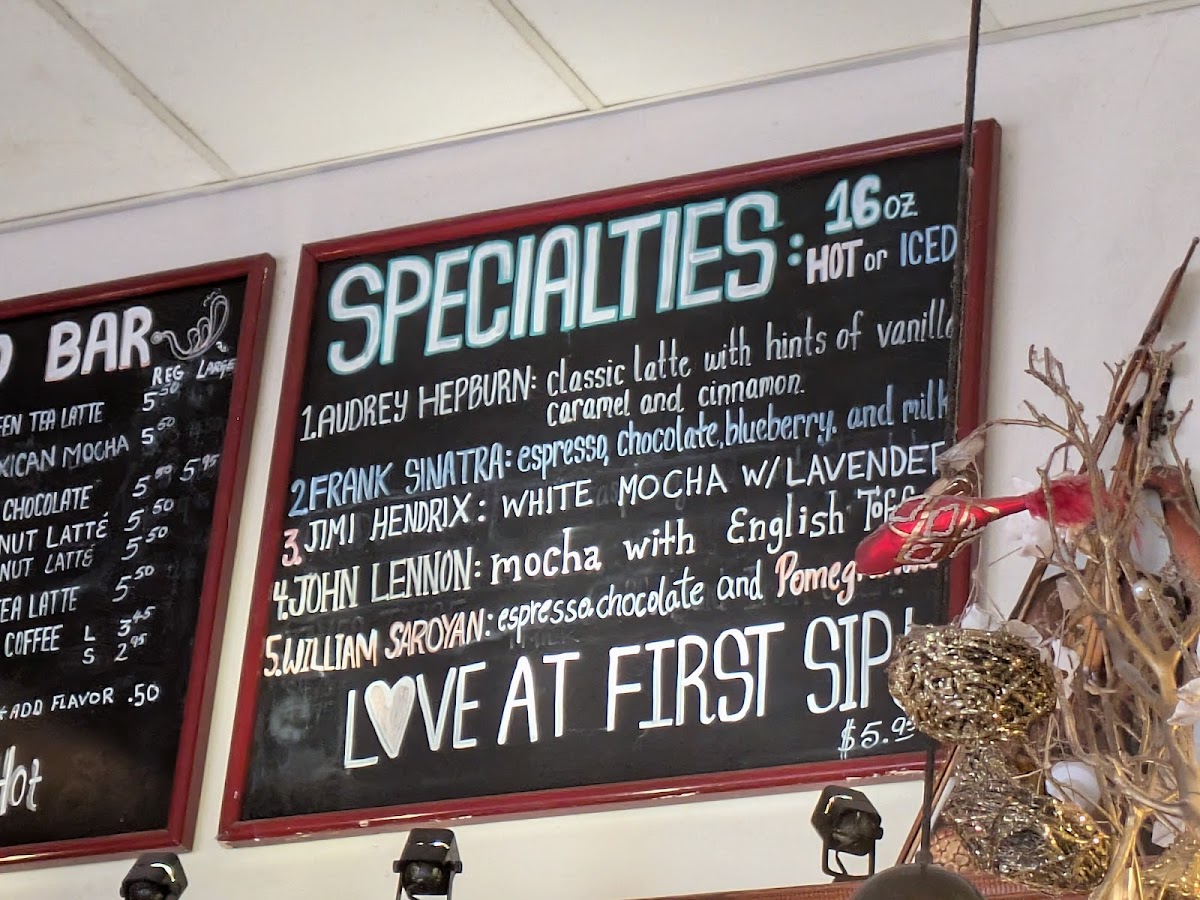 BAR
REG LARGE
TEA LATTE 5.50
MOCHA 5.50
CHOCOLATE 5.50 5.95
LATTÉ 5.50
LATTÉ 5.50
TEA LATTE 5.50
COFFEE L 3.45
S 2.95
ADD FLAVOR .50
Hot
SPECIALTIES: 16 oz
HOT or ICED
1. AUDREY HEPBURN: classic latte with hints of vanilla
caramel and cinnamon.
2. FRANK SINATRA: espresso, chocolate, blueberry. and milk
3. JIMI HENDRIX: WHITE MOCHA W/ LAVENDER
4. JOHN LENNON: mocha with English
5. WILLIAM SAROYAN: espresso, chocolate and
LOVE AT FIRST SIP!
$5.95